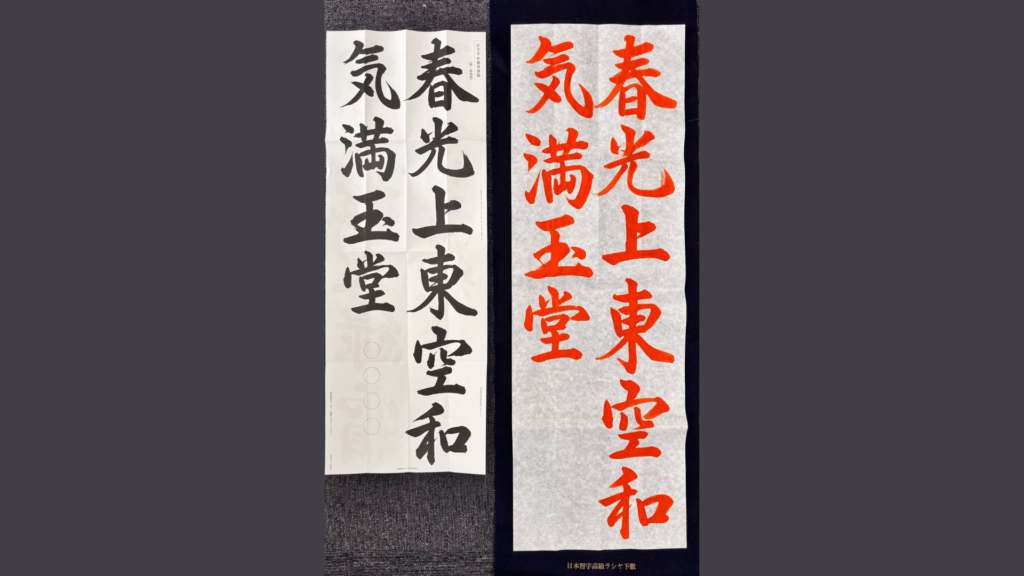 春光上東空和
気満玉堂
春光上東空和
気満玉堂
日本習字高級ラシャ下敷